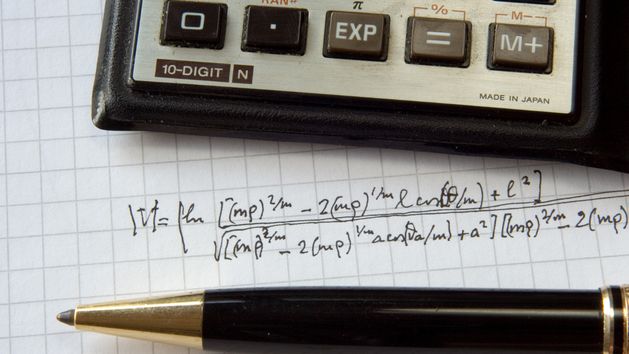 RAN# π % M–
0 · EXP = M+
10-DIGIT N
MADE IN JAPAN
ln [(mρ)^2/m − 2(mρ)^1/m l cos(θ/m) + l^2]
√[(mρ)^2/m − 2(mρ)^1/m a cos( a/m) + a^2] [(mρ)^2/m − 2(mρ)